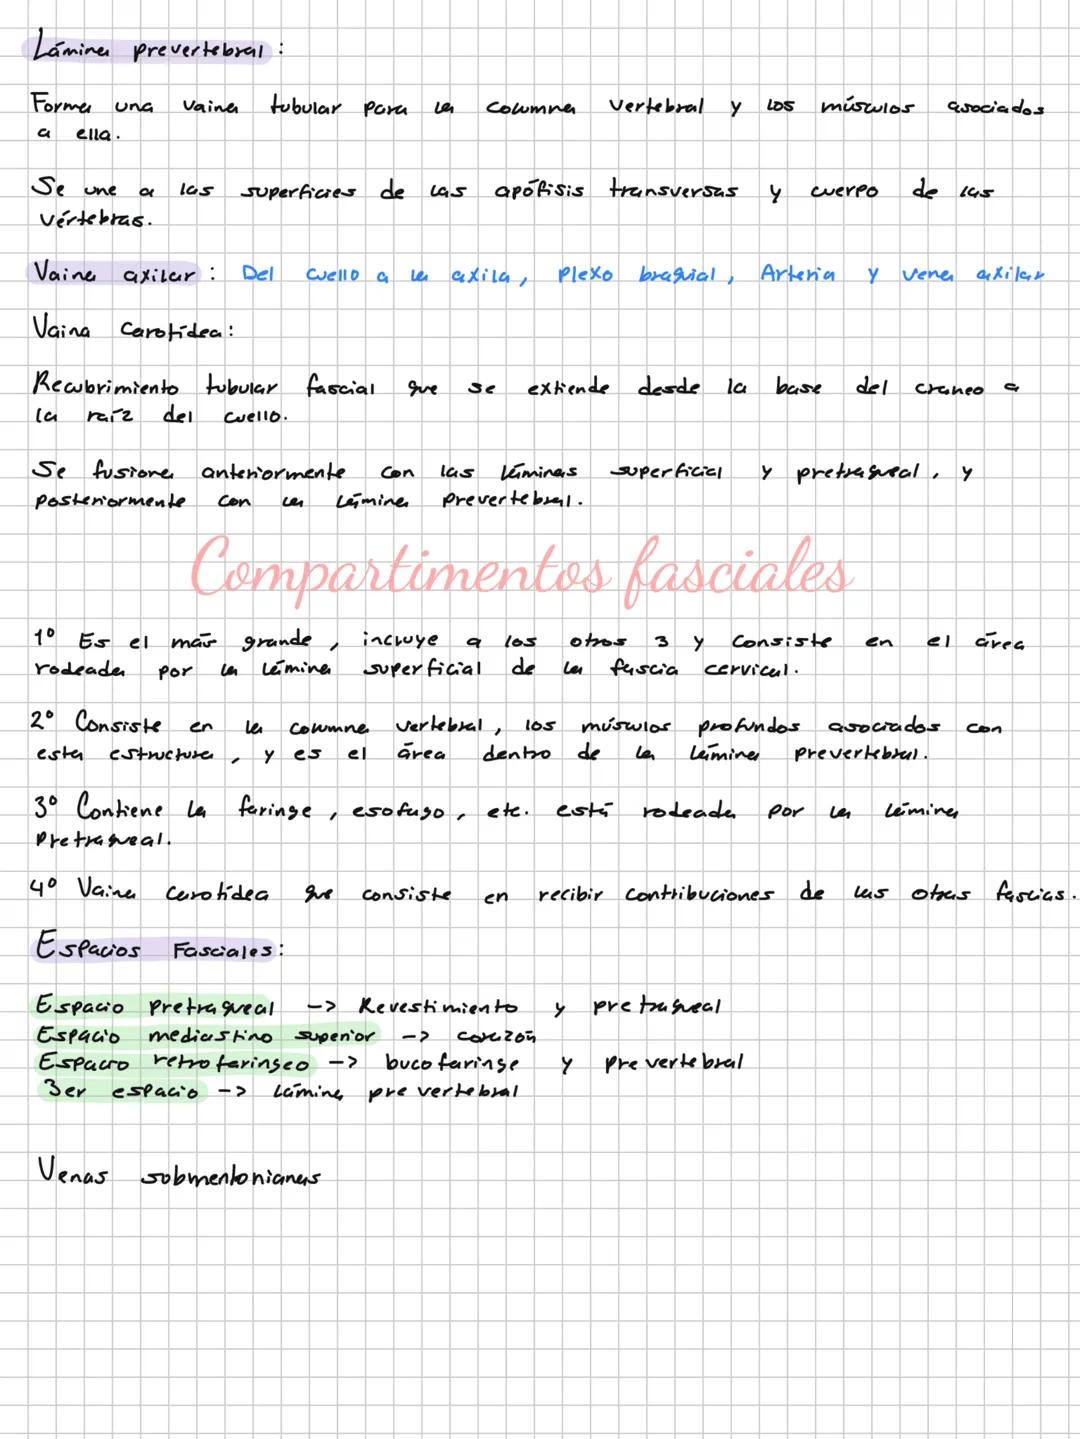 Lámina prevertebral:
Forma una vaina tubular para la columna vertebral y los músculos asociados
a ella.
Se une a las superficies de las apófisis transversas y cuerpo de las
vértebras.
Vaina axilar: Del cuello a la axila, Plexo braquial, Arteria y vena axilar
Vaina Carotídea:
Recubrimiento tubular fascial que se extiende desde la base del craneo a
la raíz del cuello.
Se fusiona anteriormente con las láminas superficial y pretraqueal, y
posteriormente con la lámina prevertebral.
Compartimentos fasciales
1º Es el más grande, incluye a los otros 3 y consiste en el área
rodeada por la lámina superficial de la fascia cervical.
2º Consiste en la columna vertebral, los músculos profundos asociados con
esta estructura, y es el área dentro de la lámina prevertebral.
3º Contiene la faringe, esofago, etc. está rodeada por la lámina
Pretraqueal.
4º Vaina carotídea que consiste en recibir contribuciones de las otras fascias.
Espacios Fasciales:
Espacio pretraqueal -> Revestimiento y pretraqueal
Espacio mediastino superior -> corazón
Espacio retrofaringeo -> bucofaringe y prevertebral
3er espacio -> Lámina prevertebral
Venas submentonianas